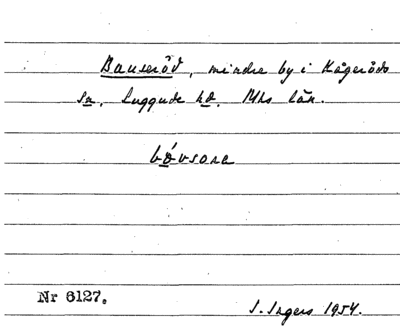 Bauseröd, mindre by i Kågeröds
sn, Luggude hd. Mhs län.
bávsore
Nr 6127.
I. Ingers 1954.